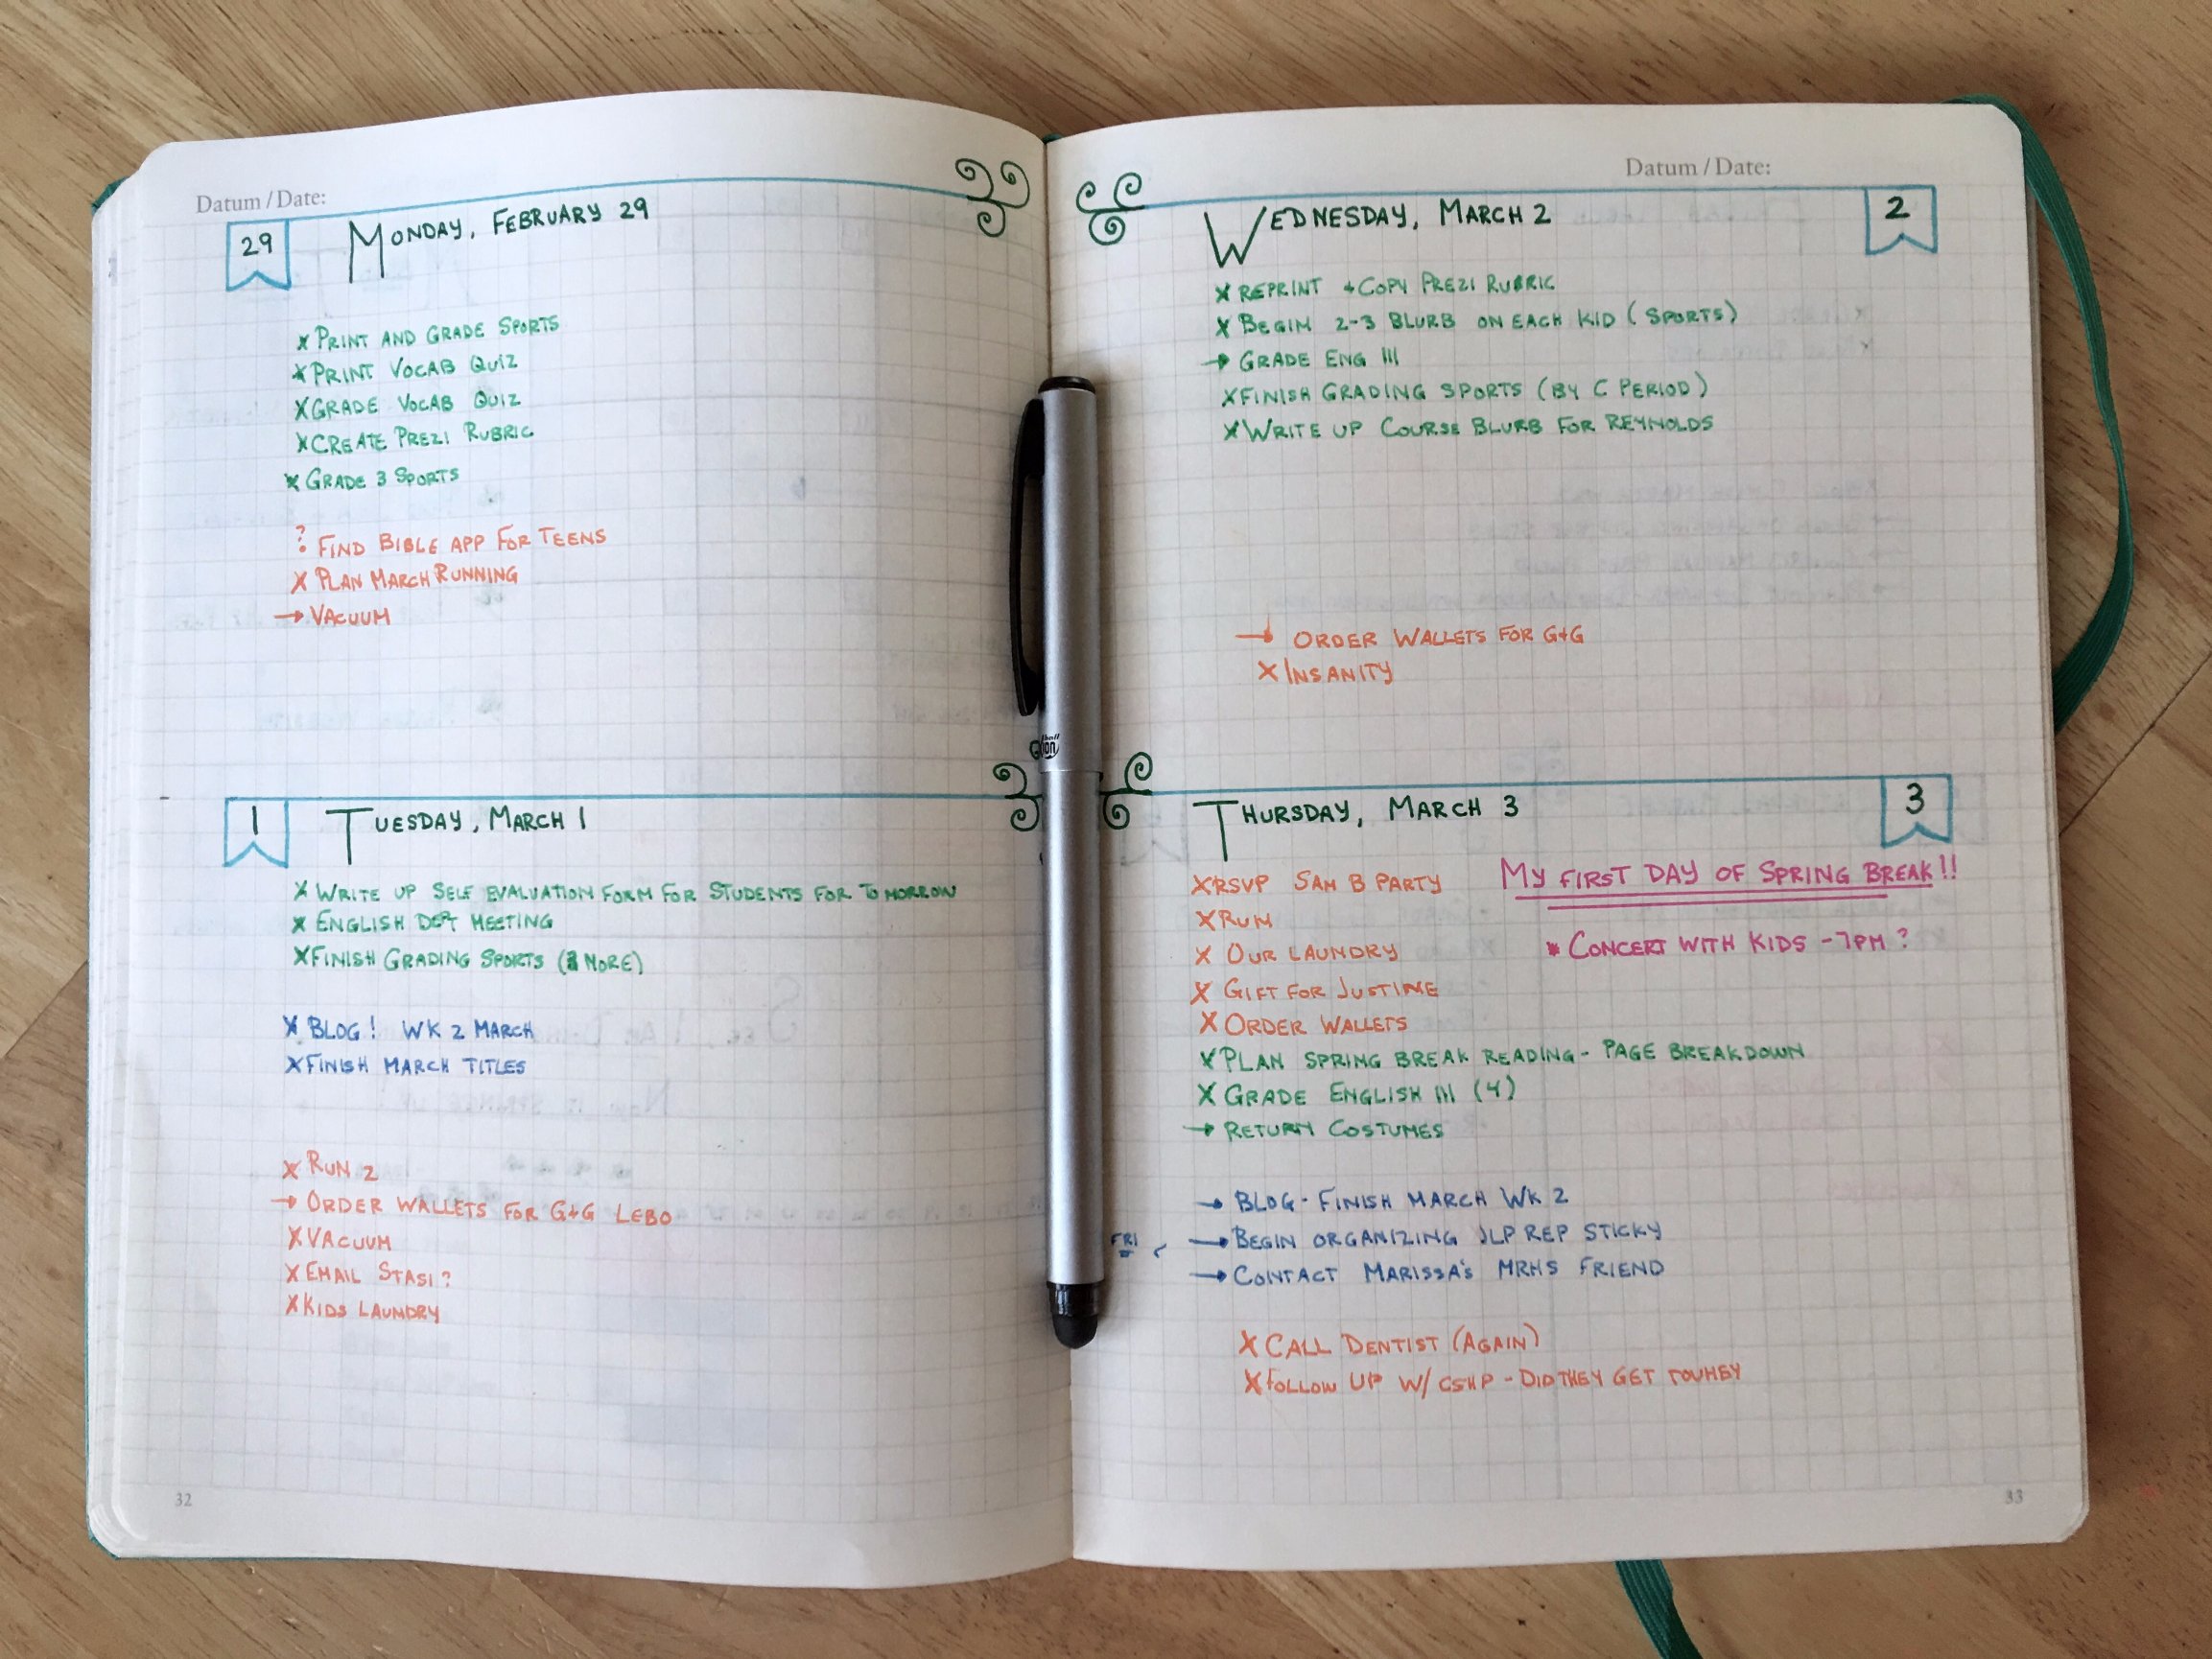 Datum / Date:
29
MONDAY, FEBRUARY 29
X PRINT AND GRADE SPORTS
X PRINT VOCAB QUIZ
X GRADE VOCAB QUIZ
X CREATE PREZI RUBRIC
X GRADE 3 SPORTS
? FIND BIBLE APP FOR TEENS
X PLAN MARCH RUNNING
→ VACUUM
1
TUESDAY, MARCH 1
X WRITE UP SELF EVALUATION FORM FOR STUDENTS FOR TOMORROW
X ENGLISH DEPT MEETING
X FINISH GRADING SPORTS ( MORE)
X BLOG! WK 2 MARCH
X FINISH MARCH TITLES
X RUN 2
→ ORDER WALLETS FOR G+G LEBO
X VACUUM
X EMAIL STASI?
X KIDS LAUNDRY
32
Datum / Date:
WEDNESDAY, MARCH 2
2
X REPRINT + COPY PREZI RUBRIC
X BEGIN 2-3 BLURB ON EACH KID (SPORTS)
→ GRADE ENG III
X FINISH GRADING SPORTS (BY C PERIOD)
X WRITE UP COURSE BLURB FOR REYNOLDS
→ ORDER WALLETS FOR G+G
X INSANITY
THURSDAY, MARCH 3
3
X RSVP SAM B PARTY
MY FIRST DAY OF SPRING BREAK!!
X RUN
X OUR LAUNDRY
* CONCERT WITH KIDS - 7PM?
X GIFT FOR JUSTINE
X ORDER WALLETS
X PLAN SPRING BREAK READING - PAGE BREAKDOWN
X GRADE ENGLISH III (4)
→ RETURN COSTUMES
→ BLOG - FINISH MARCH WK 2
FRI → BEGIN ORGANIZING JLP REP STICKY
→ CONTACT MARISSA'S MRHS FRIEND
X CALL DENTIST (AGAIN)
X FOLLOW UP W/ CSHP - DID THEY GET TOUHEY
33